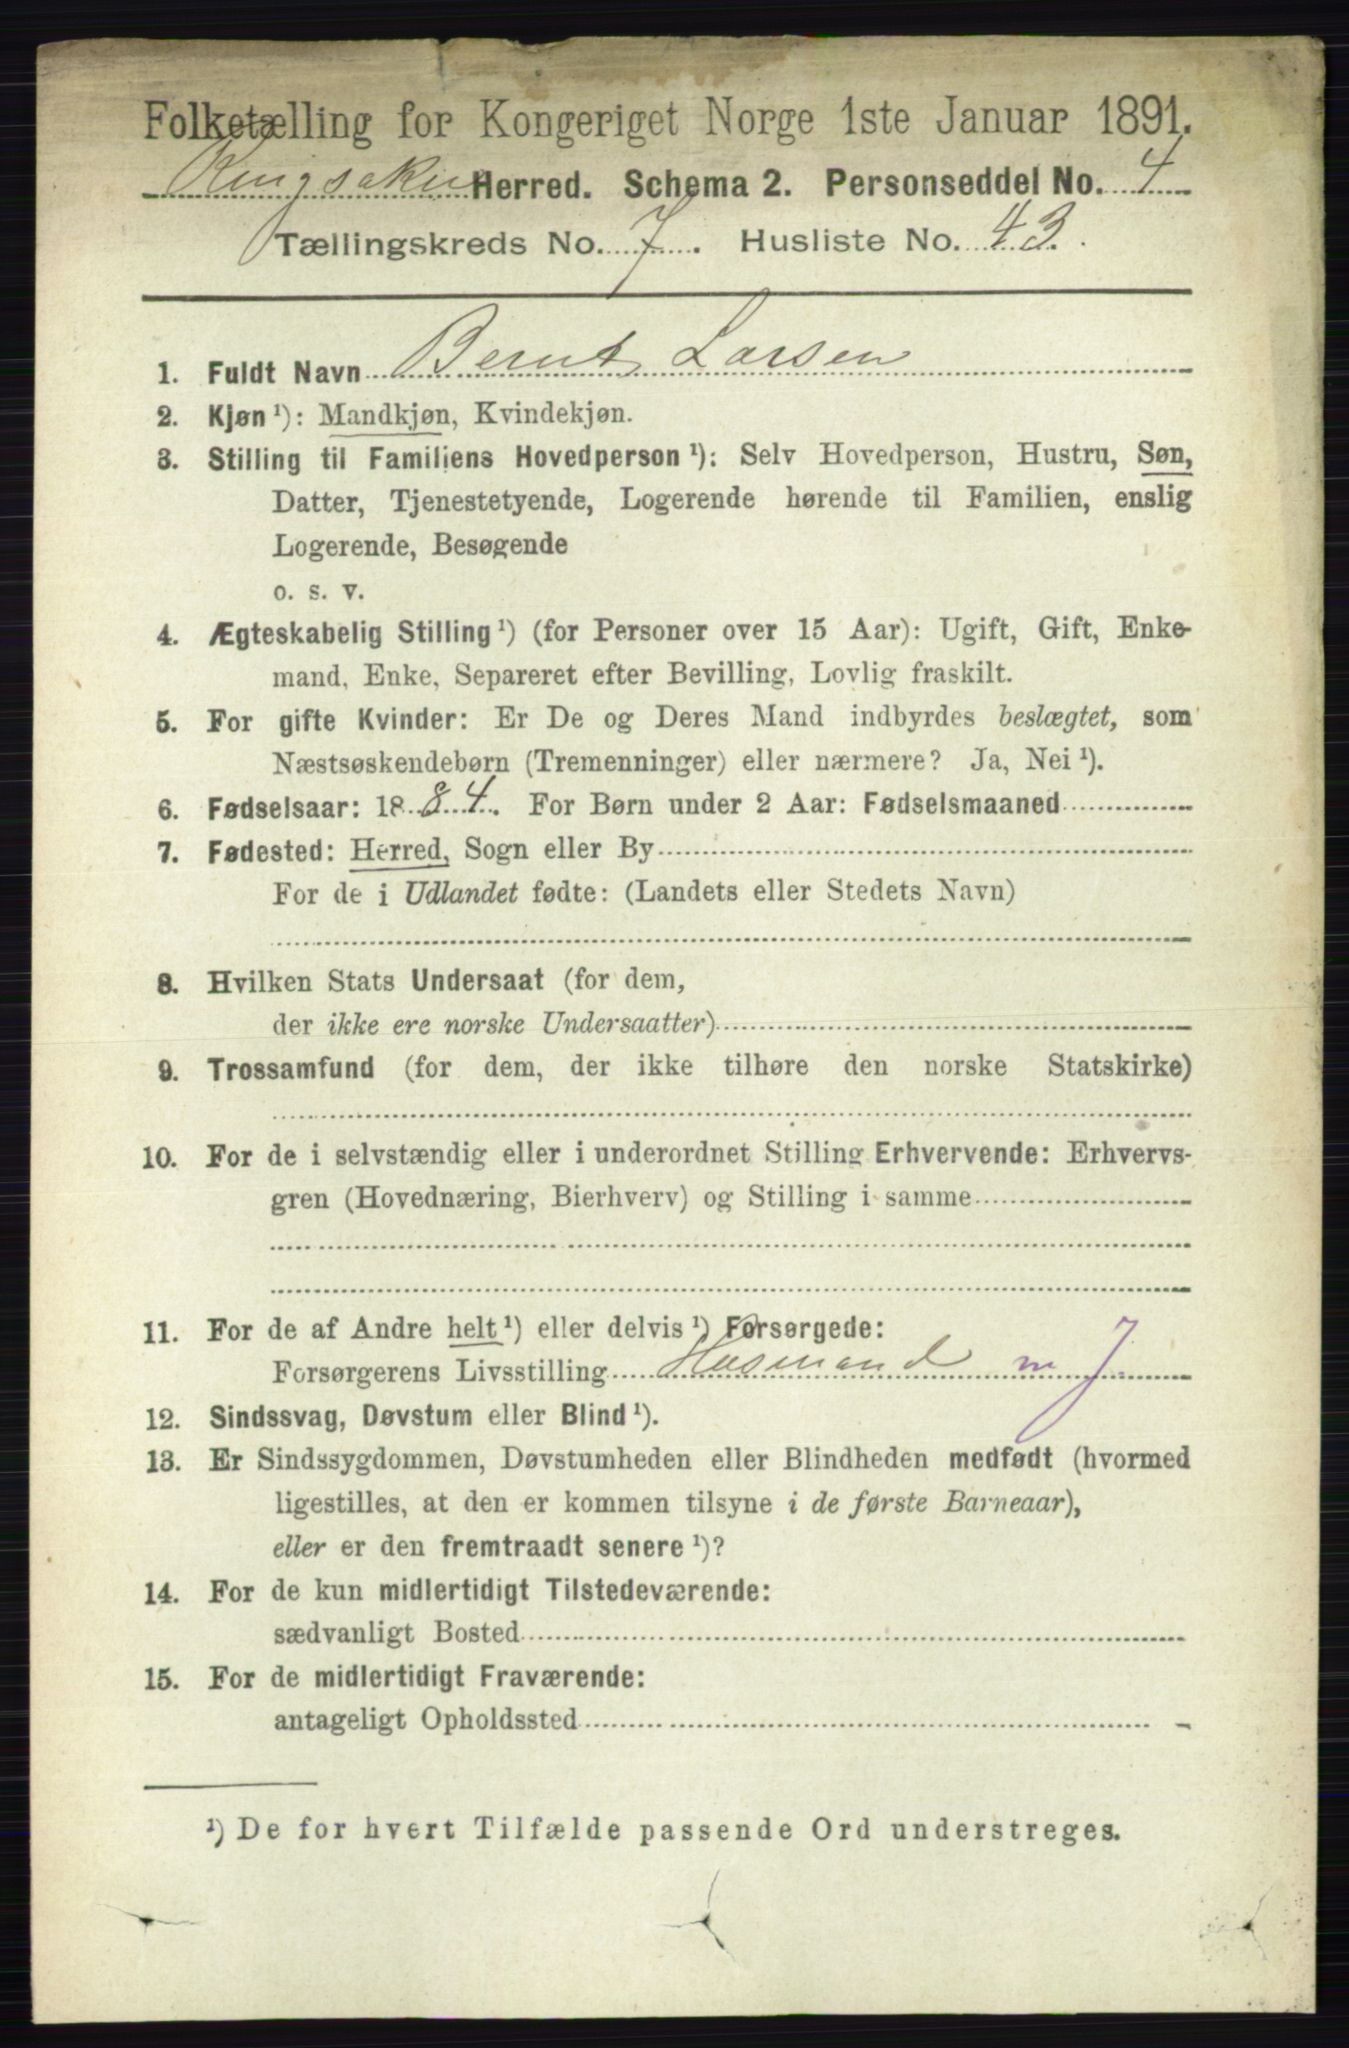 Folketælling for Kongeriget Norge 1ste Januar 1891.
Ringsaker Herred. Schema 2. Personseddel No. 4
Tællingskreds No. 7. Husliste No. 43.
1. Fuldt Navn Bernt Larsen
2. Kjøn ¹): Mandkjøn, Kvindekjøn.
3. Stilling til Familiens Hovedperson ¹): Selv Hovedperson, Hustru, Søn,
Datter, Tjenestetyende, Logerende hørende til Familien, enslig
Logerende, Besøgende
o. s. v.
4. Ægteskabelig Stilling ¹) (for Personer over 15 Aar): Ugift, Gift, Enke-
mand, Enke, Separeret efter Bevilling, Lovlig fraskilt.
5. For gifte Kvinder: Er De og Deres Mand indbyrdes beslægtet, som
Næstsøskendebørn (Tremenninger) eller nærmere? Ja, Nei ¹).
6. Fødselsaar: 1884. For Børn under 2 Aar: Fødselsmaaned
7. Fødested: Herred, Sogn eller By
For de i Udlandet fødte: (Landets eller Stedets Navn)
8. Hvilken Stats Undersaat (for dem,
der ikke ere norske Undersaatter)
9. Trossamfund (for dem, der ikke tilhøre den norske Statskirke)
10. For de i selvstændig eller i underordnet Stilling Erhvervende: Erhvervs-
gren (Hovednæring, Bierhverv) og Stilling i samme
11. For de af Andre helt ¹) eller delvis ¹) Forsørgede:
Forsørgerens Livsstilling Husmand m J
12. Sindssvag, Døvstum eller Blind ¹).
13. Er Sindssygdommen, Døvstumheden eller Blindheden medfødt (hvormed
ligestilles, at den er kommen tilsyne i de første Barneaar),
eller er den fremtraadt senere ¹)?
14. For de kun midlertidigt Tilstedeværende:
sædvanligt Bosted
15. For de midlertidigt Fraværende:
antageligt Opholdssted
¹) De for hvert Tilfælde passende Ord understreges.